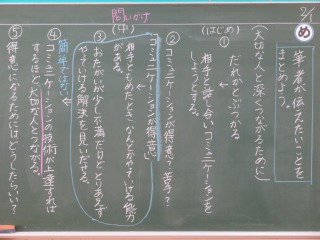 2/1
め
筆者が伝えたいことを
きめよう。
(大切な人と深くつながるために)
(はじめ)
①だれかとぶつかる
相手と話し合い、コミュニケーションを
しようとする。
問いかけ
②コミュニケーションが得意?苦手?
(中)
コミュニケーションが得意
相手ともめたとき、なんとかやっていける能力
がある。
③おたがいが少し不満だけど、とりあえず
やっていける解決を見いだせる。
簡単ではない。
④コミュニケーションの技術が上達すれば
するほど大切な人とつながる。
⑤得意になるためにはどうしたらいい?